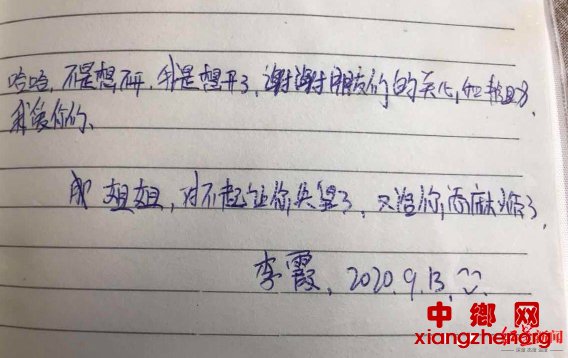 哈哈,不是想不开,我是想开了,谢谢朋友们的关心,和帮助,
我爱你们、
姐姐,对不起让你失望了,又给你添麻烦了,
李霞、2020.9.13、
中鄉网
xiangzheng.org
新闻